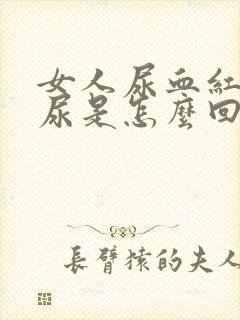 女人尿血紅
尿是怎麼回
長臂猿的夫人